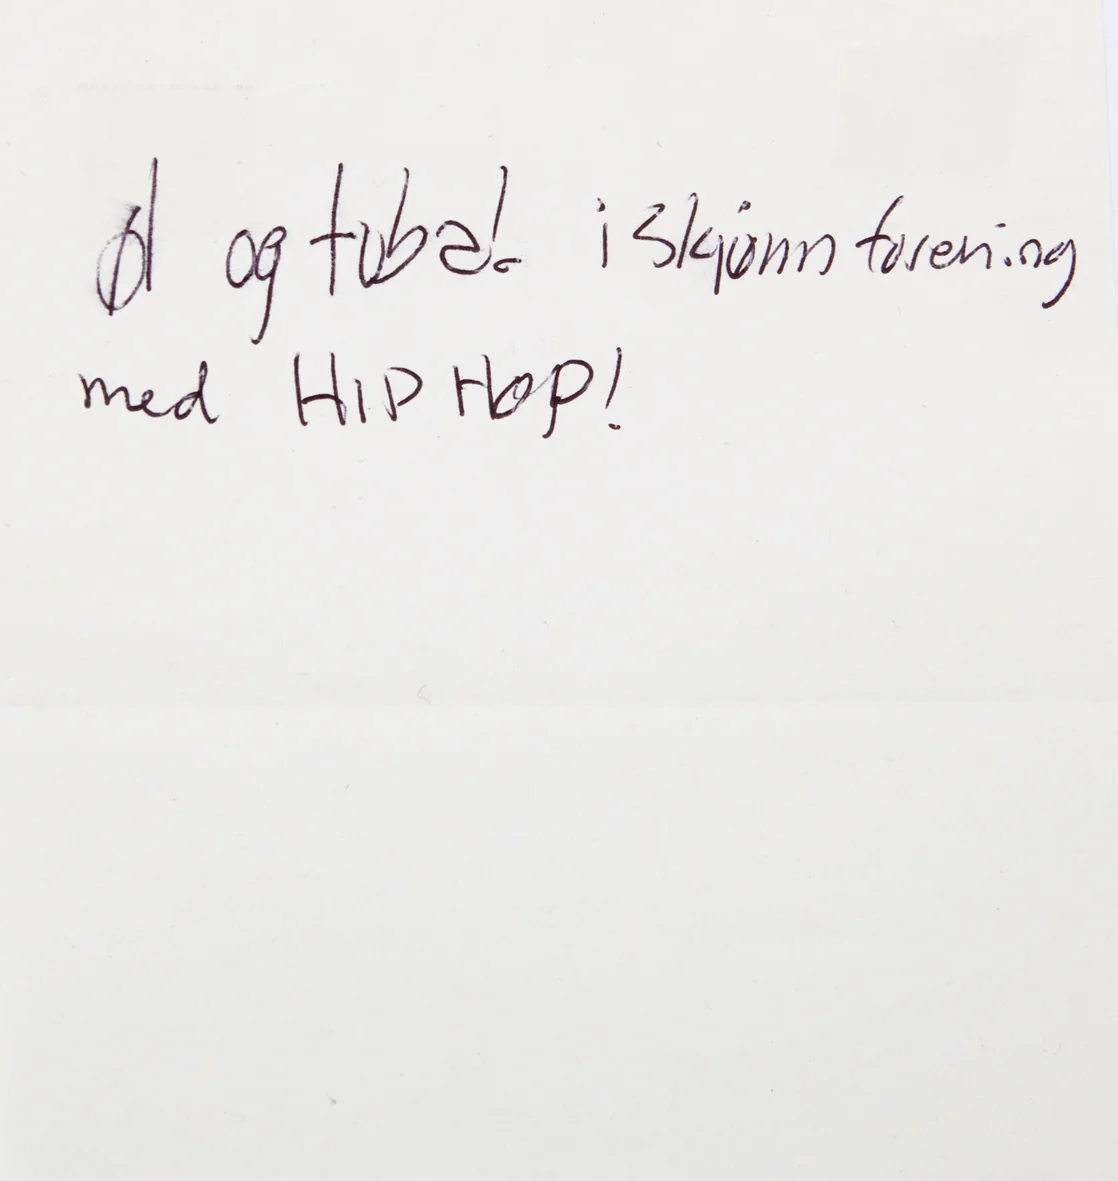 Øl og tuba! i skjønn forening
med HIP HOP!